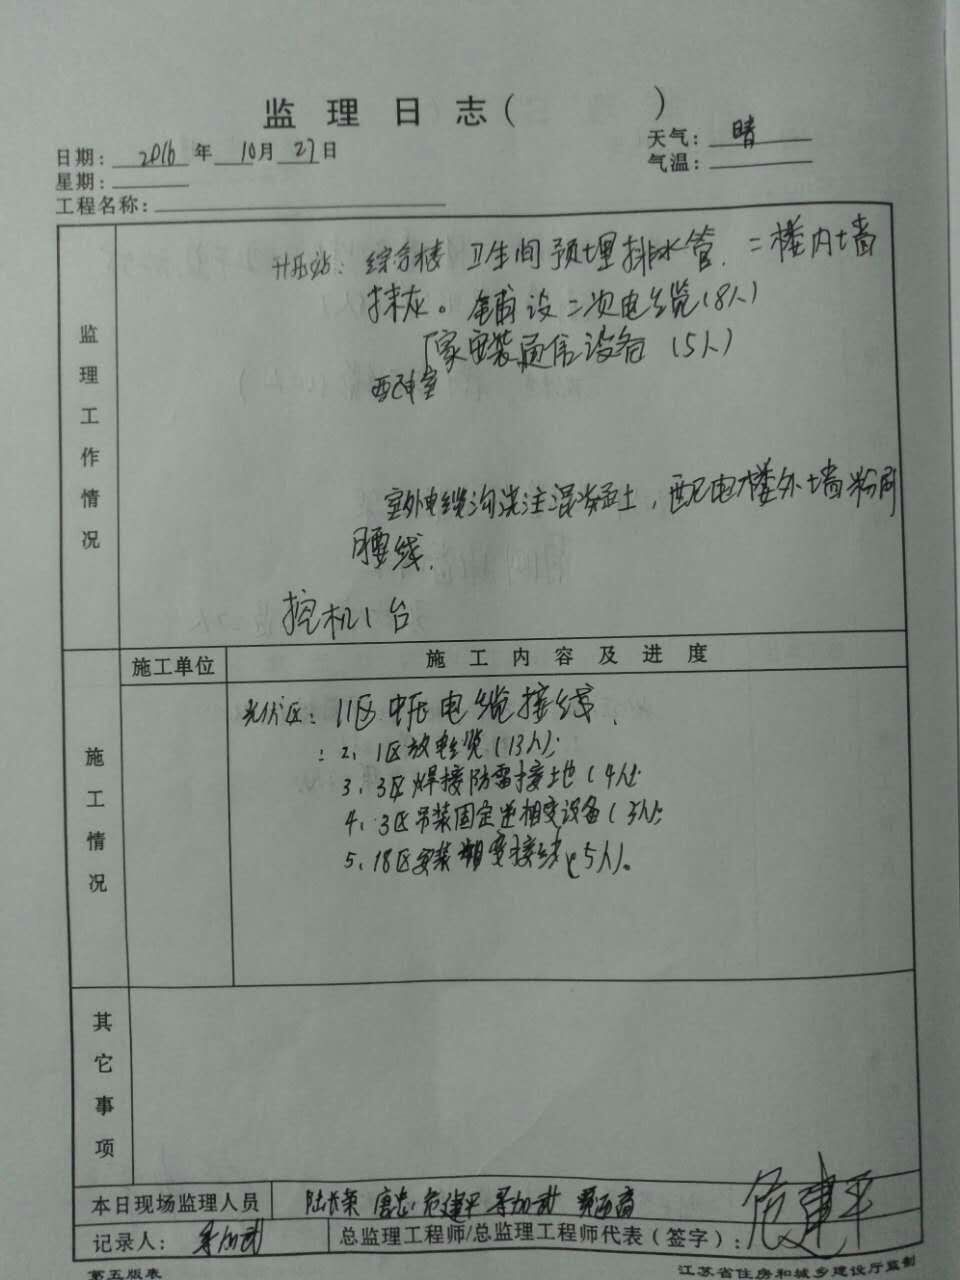 监理日志( )
日期: 2016 年 10月 27日
天气: 晴
星期:
气温:
工程名称:
监理工作情况
升压站: 综合楼 卫生间预埋排水管. 二楼内墙
抹灰。铺设二次电缆(8人)
厂家安装通信设备(5人)
配电室
室外电缆沟浇注混凝土, 配电楼外墙粉刷
腰线.
挖机1台
施工单位
施工内容及进度
施工情况
光伏区: 11区中压电缆接线.
: 2、1区放电缆(13人);
3、3区焊接防雷接土地(4人);
4、3区吊装固定逆相变设备(3人);
5、18区安装 变接线(5人)。
其它事项
本日现场监理人员 陆长荣 唐忠 危建平
记录人:
总监理工程师/总监理工程师代表(签字): 危建平
第五版表
江苏省住房和城乡建设厅监制